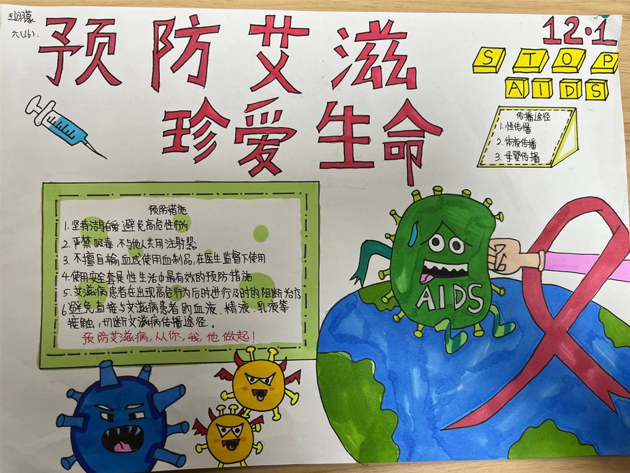 六(4)
预防艾滋
珍爱生命
12·1
STOP
AIDS
传播途径
1.性传播
2.体液传播
3.母婴传播
预防措施
1.坚持洁身自爱 避免高危性行为
2.严禁吸毒 不与他人共用注射器
3.不擅自输血或使用血制品,在医生监督下使用
4.使用安全套是性生活中最有效的预防措施
5.艾滋病患者在出现高危行为时进行及时的阻断治疗
6.避免直接与艾滋病患者的血液、精液、乳液等
接触,切断艾滋病传播途径。
预防艾滋病,从你,我,他做起!
AIDS